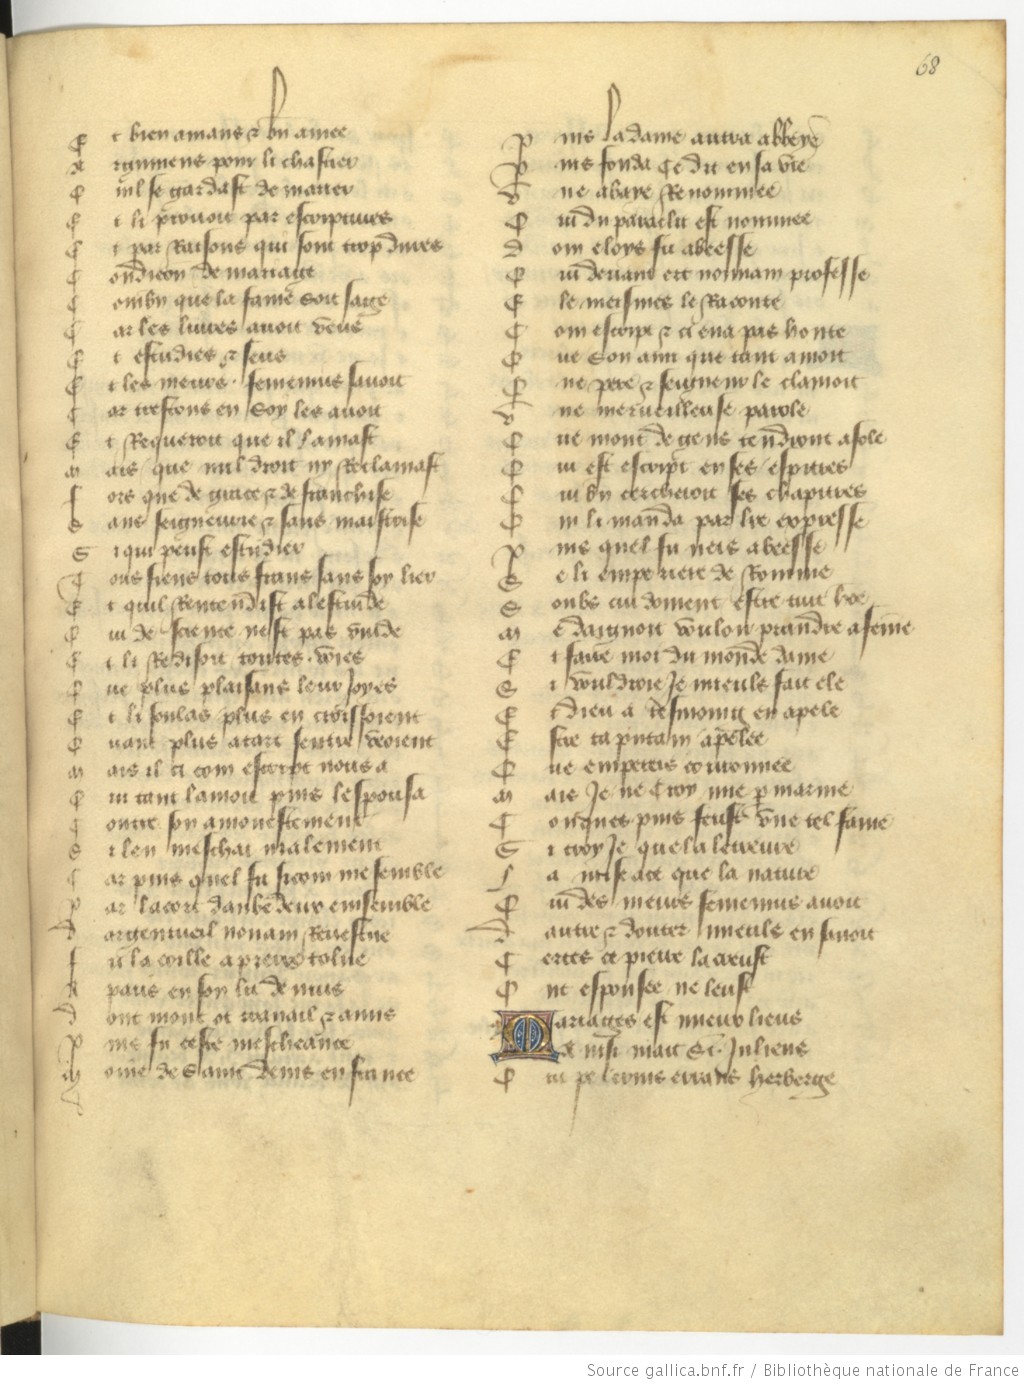 68
E t bien amans & bn amee
A rgumens pour li chastier
Q uil se gardast de marier
E t li prouoit par escriptures
E t par Raisons qui sont trop dures
C ondicion de mariage
C ombn que la fame soit sage
C ar les liures auoit veus
E t estudies & seus
E t les meurs femenins sauoit
C ar trestous en soy les auoit
E t Requeroit que il lamast
M ais que nul droit ny Reclamast
F ors que de grace & de franchise
S ans seigneurie & sans maistrise
S i qui peust estudier
T ous siens tous frans sans soy lier
E t quil Rentendist a lestuide
Q ui de science nest pas vuide
E t li Redisoit toutes voies
Q ue plus plaisans leur Joyes
E t li soulas plus en croissoient
Q uant plus a tart sentre veoient
M ais il si com escript nous a
Q ui tant lamoit puis lespousa
C ontre son amonestement
S i len meschai malement
C ar puis quel fu sicom me semble
P ar lacort danbedeux ensemble
D argentueil nonnain Reuestue
F u la coille a pierre tolue
A paris en son lit de nuis
D ont mont ot trauail & anuis
P uis fu ceste mescheance
M oine de saint denis en france
P uis la dame autra abbeye
P uis fonda Ce dit en sa vie
V ne abaye Renommee
Q ui du paraclit est nommee
D om eloys fu abeesse
Q ui deuant ert nonnain professe
E le meismes le Raconte
C om escript & ci en a pas honte
Q ue son ami que tant amoit
Q ue pere & seigneur le clamoit
V ne merueilleuse parole
Q ue mont de gens tendront a fole
Q ui est escript en ses espitres
Q ui bn cercheroit ses chapitres
Q ui li manda par lre expresse
P uis quel fu neis abeesse
S e li emperiere de Romme
S oubs cui doiuent estre tuit hoe
M e daignoit vouloir prandre a feme
E t faire moi du monde dame
S i vouldroie Je mieuls fait ele
E t dieu a tesmoing en apele
E stre ta putain apelee
Q ue emperris couronnee
M ais Je ne Croy mie p marme
C onques puis feust vne tel fame
S i croy Je que la lectreure
L a mise a ce que la nature
Q ui des meurs femenins auoit
D autre & donter mieuls en sauoit
C ertes ce pierre la creust
O nt espousee ne leust
Mariages est mieux liens
Q ui pelerins errans herberge
Source gallica.bnf.fr / Bibliothèque nationale de France